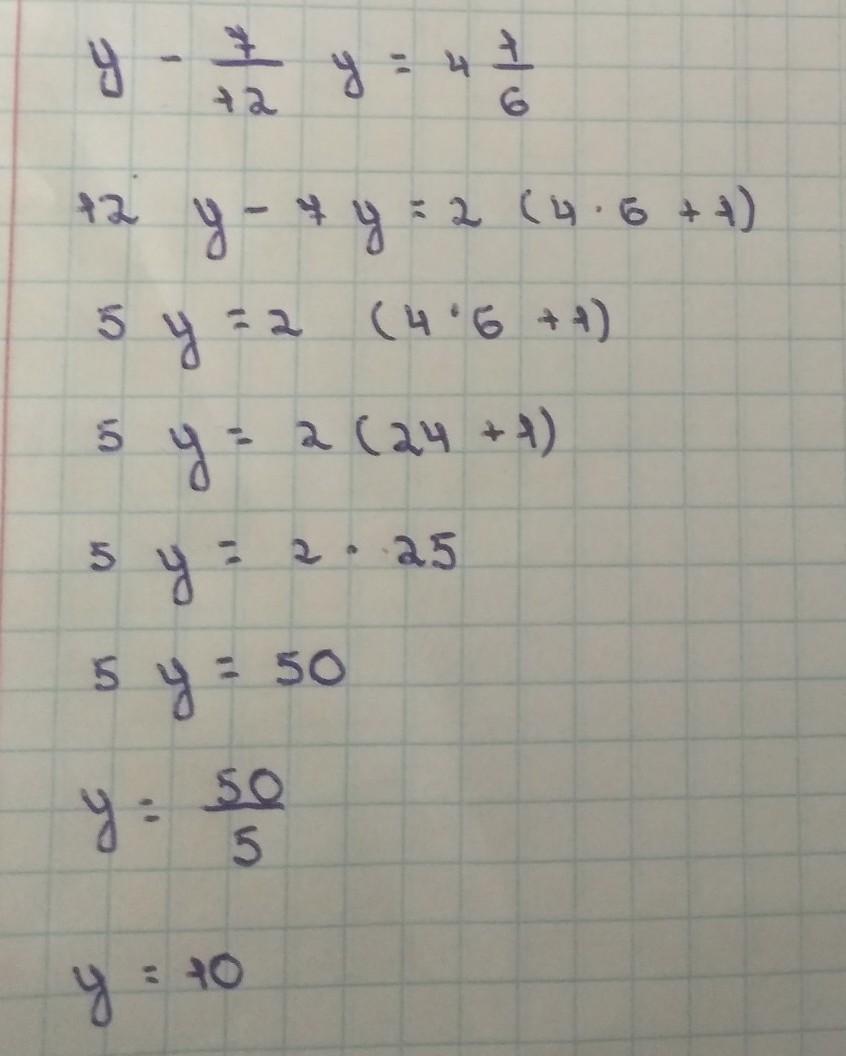 y - 7/12 y = 4 1/6
12 y - 7 y = 2 (4 · 6 + 1)
5 y = 2 (4 · 6 + 1)
5 y = 2 (24 + 1)
5 y = 2 · 25
5 y = 50
y = 50/5
y = 10